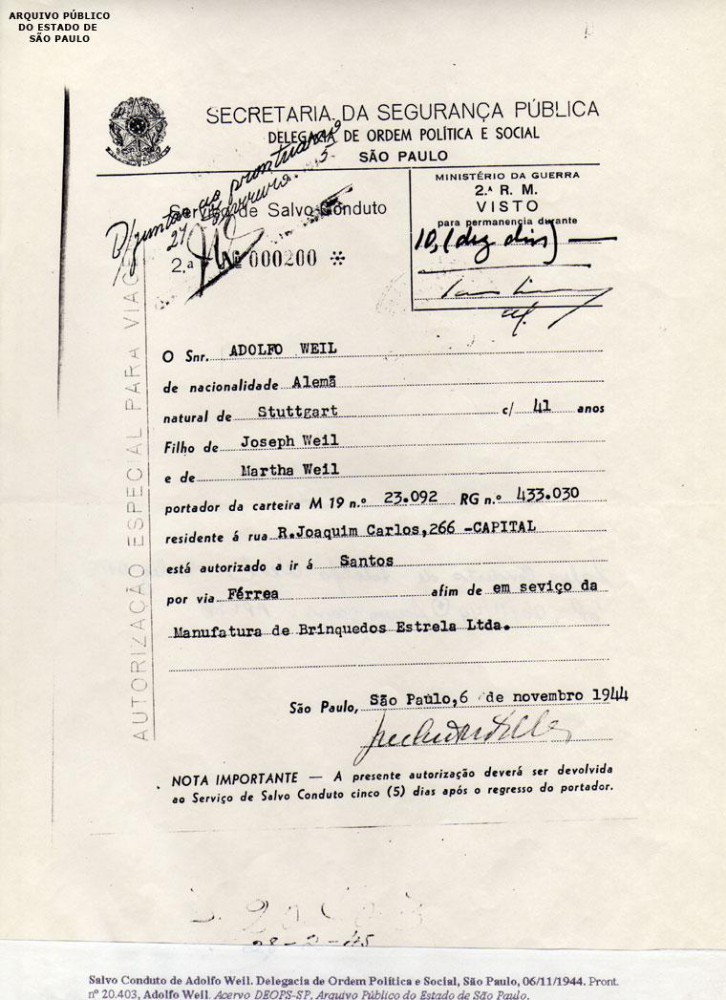 ARQUIVO PÚBLICO
DO ESTADO DE
SÃO PAULO
SECRETARIA DA SEGURANÇA PÚBLICA
DELEGACIA DE ORDEM POLÍTICA E SOCIAL
SÃO PAULO
D/juntar ao prontuario
27
Serviço de Salvo Conduto
2.a Nº 000200 *
MINISTÉRIO DA GUERRA
2.ª R. M.
VISTO
para permanencia durante
10, (dez dias)
AUTORIZAÇÃO ESPECIAL PARA VIAG
O Snr. ADOLFO WEIL
de nacionalidade Alemã
natural de Stuttgart c/ 41 anos
Filho de Joseph Weil
e de Martha Weil
portador da carteira M 19 n.º 23.092 RG n.º 433.030
residente á rua R.Joaquim Carlos,266 -CAPITAL
está autorizado a ir á Santos
por via Férrea afim de em seviço da
Manufatura de Brinquedos Estrela Ltda.
São Paulo, São Paulo,6 de novembro 1944
NOTA IMPORTANTE — A presente autorização deverá ser devolvida
ao Serviço de Salvo Conduto cinco (5) dias após o regresso do portador.
Salvo Conduto de Adolfo Weil. Delegacia de Ordem Política e Social, São Paulo, 06/11/1944. Pront.
nº 20.403, Adolfo Weil. Acervo DEOPS-SP. Arquivo Público do Estado de São Paulo.